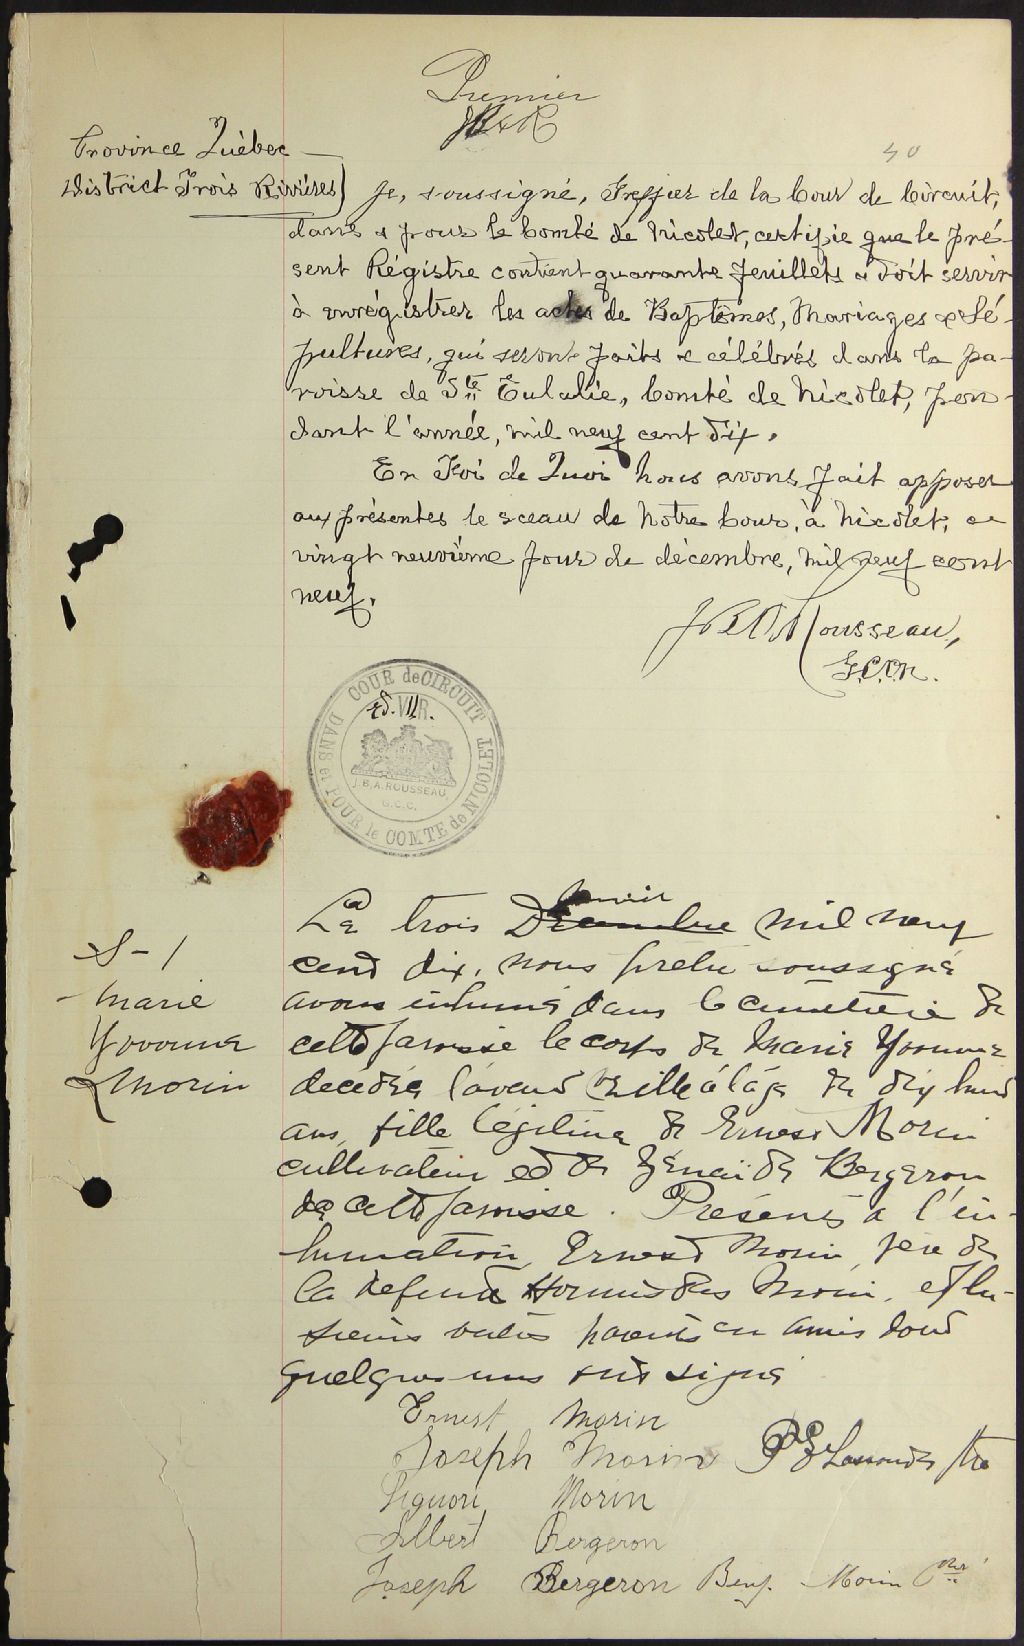 Premier
JBAR
40
Province Québec
District Trois Rivières
Je, soussigné, Greffier de la Cour de Circuit,
dans & pour le Comté de Nicolet, certifie que le pré-
sent Régistre contient quarante feuillets & doit servir
à enrégistrer les actes de Baptêmes, Mariages & Sé-
pultures, qui seront faits & célébrés dans la pa-
roisse de Ste Eulalie, Comté de Nicolet, pen-
dant l'année, mil neuf cent dix.
En Foi de Quoi nous avons fait apposer
aux présentes le sceau de Notre Cour, à Nicolet, ce
vingt neuvième jour de décembre, mil neuf cent
neuf.
JBA Rousseau,
G.C.C.N.
COUR de CIRCUIT DANS et POUR le COMTE de NICOLET
Ed. VII R.
J. B. A. ROUSSEAU
G.C.C.
S-1
Marie
Yvonne
Morin
Le trois Décembre janvier mil neuf
cent dix, nous prêtre soussigné
avons inhumé dans le cimetière de
cette paroisse le corps de Marie Yvonne
décédée l'avant veille à l'âge de dix huit
ans, fille légitime de Ernest Morin
cultivateur et de Zénaïde Bergeron
de cette paroisse. Présents à l'in-
humation, Ernest Morin, père de
la défunte Hormisdas Morin, et plu-
sieurs autres parents et amis dont
quelques uns ont signé
Ernest Morin
Joseph Morin P E Lassonde ptre
Liguori Morin
Albert Bergeron
Joseph Bergeron Benj. Morin